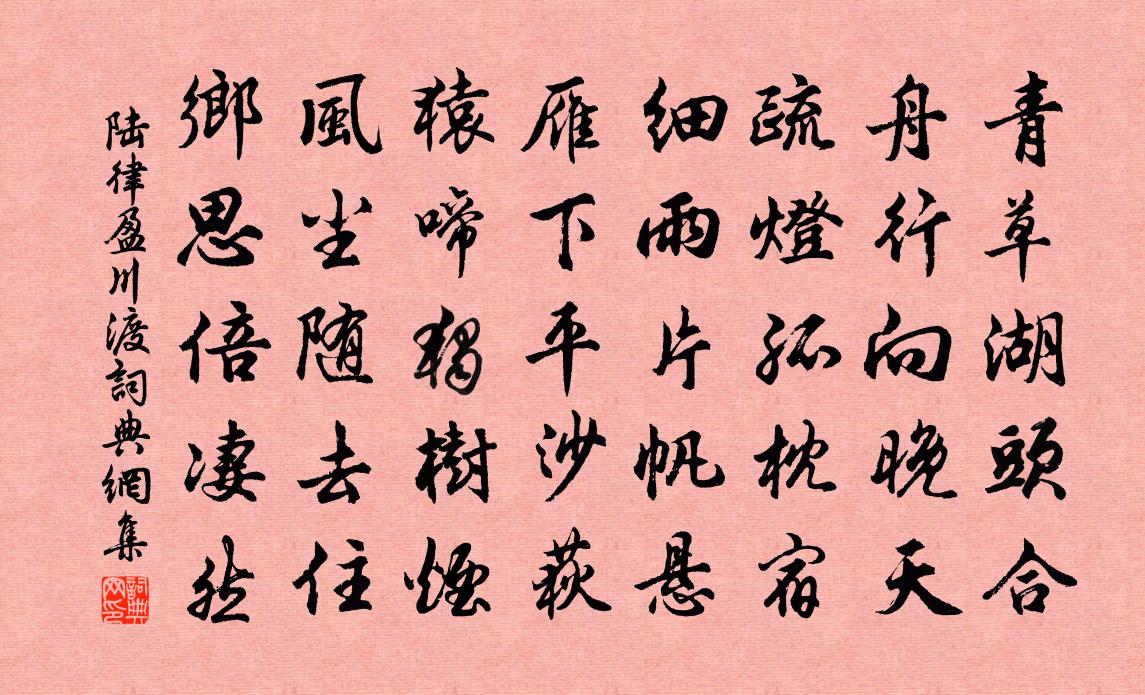 青草湖頭合
舟行向晚天
疏燈孤枕宿
細雨片帆懸
雁下平沙荻
猿啼獨樹煙
風尘随去住
鄉思倍凄然
陆律盈川渡詞典網集
詞典網印